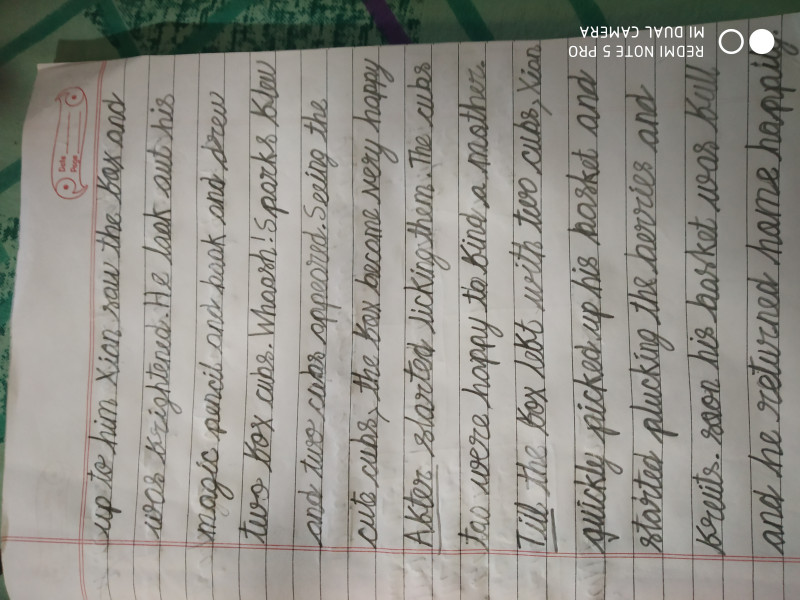 Date
Page
up to him Xian saw the box and
was brightened. He look out his
magic pencil and book and drew
two box cubs. Whoosh! Sparks flew
and two cubs appeared. Seeing the
cute cubs, the box became very happy
After started licking them. The cubs
too were happy to find a mother.
Till the box left with two cubs, Xian
quickly picked up his basket and
started plucking the berries and
fruits. soon his basket was full
and he returned home happily.
REDMI NOTE 5 PRO
MI DUAL CAMERA